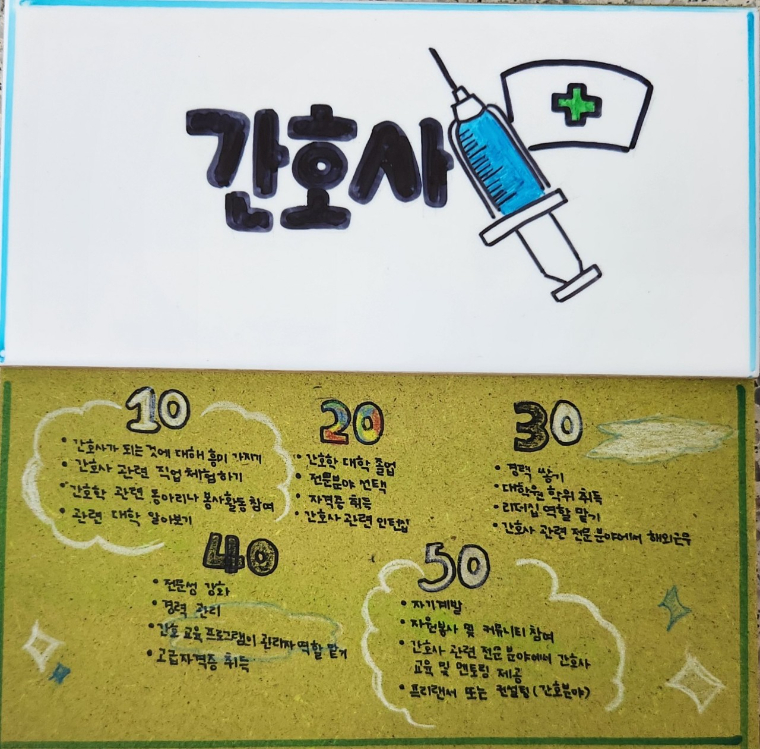 간호사
10
• 간호사가 되는것에 대해 흥미 가지기
• 간호사 관련 직업체험하기
• 간호학 관련 동아리나 봉사활동 참여
• 관련 대학 알아보기
20
• 간호학 대학 졸업
• 전문분야 선택
• 자격증 취득
• 간호사 관련 인턴십
30
• 경력 쌓기
• 대학원 학위 취득
• 리더십 역할 맡기
• 간호사 관련 전문 분야에서 해외근무
40
• 전문성 강화
• 경력 관리
• 간호 교육 프로그램이 관리자 역할 맡기
• 고급자격증 취득
50
• 자기계발
• 자원봉사 및 커뮤니티 참여
• 간호사 관련 전문 분야에서 간호사
교육 및 멘토링 제공
• 프리랜서 또는 컨설팅 (간호분야)